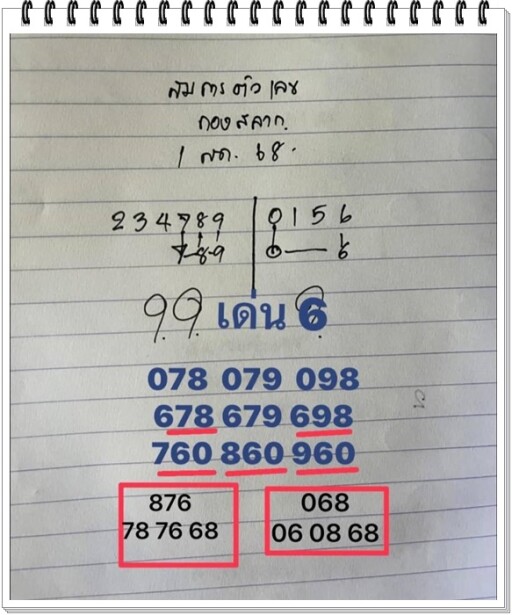 สมการตัวเลข
กองสลาก
1 สค. 68.
234789 0156
789 0 6
เด่น 6
078 079 098
678 679 698
760 860 960
876
78 76 68
068
06 08 68